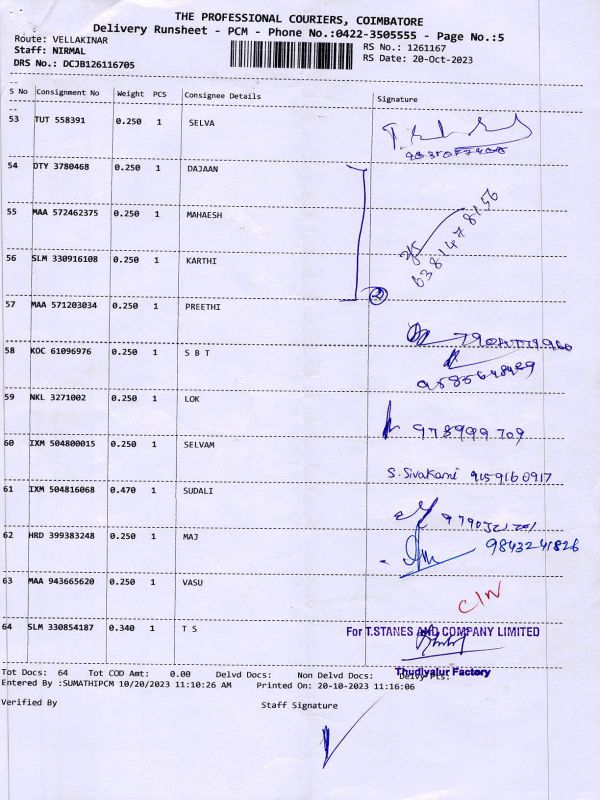 THE PROFESSIONAL COURIERS, COIMBATORE
Delivery Runsheet - PCM - Phone No.:0422-3505555 - Page No.:5
Route: VELLAKINAR
RS No.: 1261167
Staff: NIRMAL
RS Date: 20-Oct-2023
DRS No.: DCJB126116705
S No Consignment No Weight PCS Consignee Details Signature
53 TUT 558391 0.250 1 SELVA
54 DTY 3780468 0.250 1 DAJAAN
55 MAA 572462375 0.250 1 MAHAESH
56 SLM 330916108 0.250 1 KARTHI
57 MAA 571203034 0.250 1 PREETHI
58 KOC 61096976 0.250 1 S B T
59 NKL 3271002 0.250 1 LOK
978999709
60 IXM 504800015 0.250 1 SELVAM
S. Sivakami 9159160917
61 IXM 504816068 0.470 1 SUDALI
62 HRD 399383248 0.250 1 MAJ
9843241826
63 MAA 943665620 0.250 1 VASU
C/N
64 SLM 330854187 0.340 1 T S
For T.STANES AND COMPANY LIMITED
Thudiyalur Factory
Tot Docs: 64 Tot COD Amt: 0.00 Delvd Docs: Non Delvd Docs: Delvy Pts:
Entered By :SUMATHIPCM 10/20/2023 11:10:26 AM Printed On: 20-10-2023 11:16:06
Verified By Staff Signature